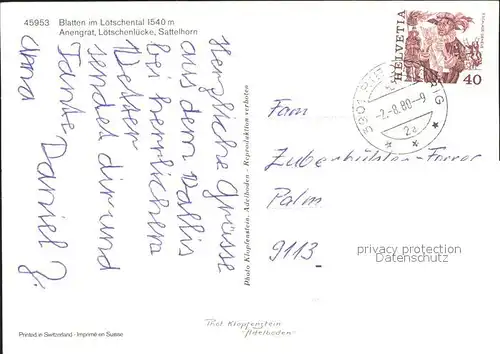 45953 Blatten im Lötschental 1540 m
Anengrat, Lötschenlücke, Sattelhorn
Herzliche Grüsse
aus dem Wallis
bei herrlichem
Wetter
sendet dir und
Tante
Daniel Z.
Photo Klopfenstein, Adelboden - Reproduktion verboten
HELVETIA
40
-2.-8.80--9
2a
Fam
Zuberbühler-Forrer
Palm
9113
privacy protection
Phot Klopfenstein
"Adelboden"
Printed in Switzerland - Imprimé en Suisse